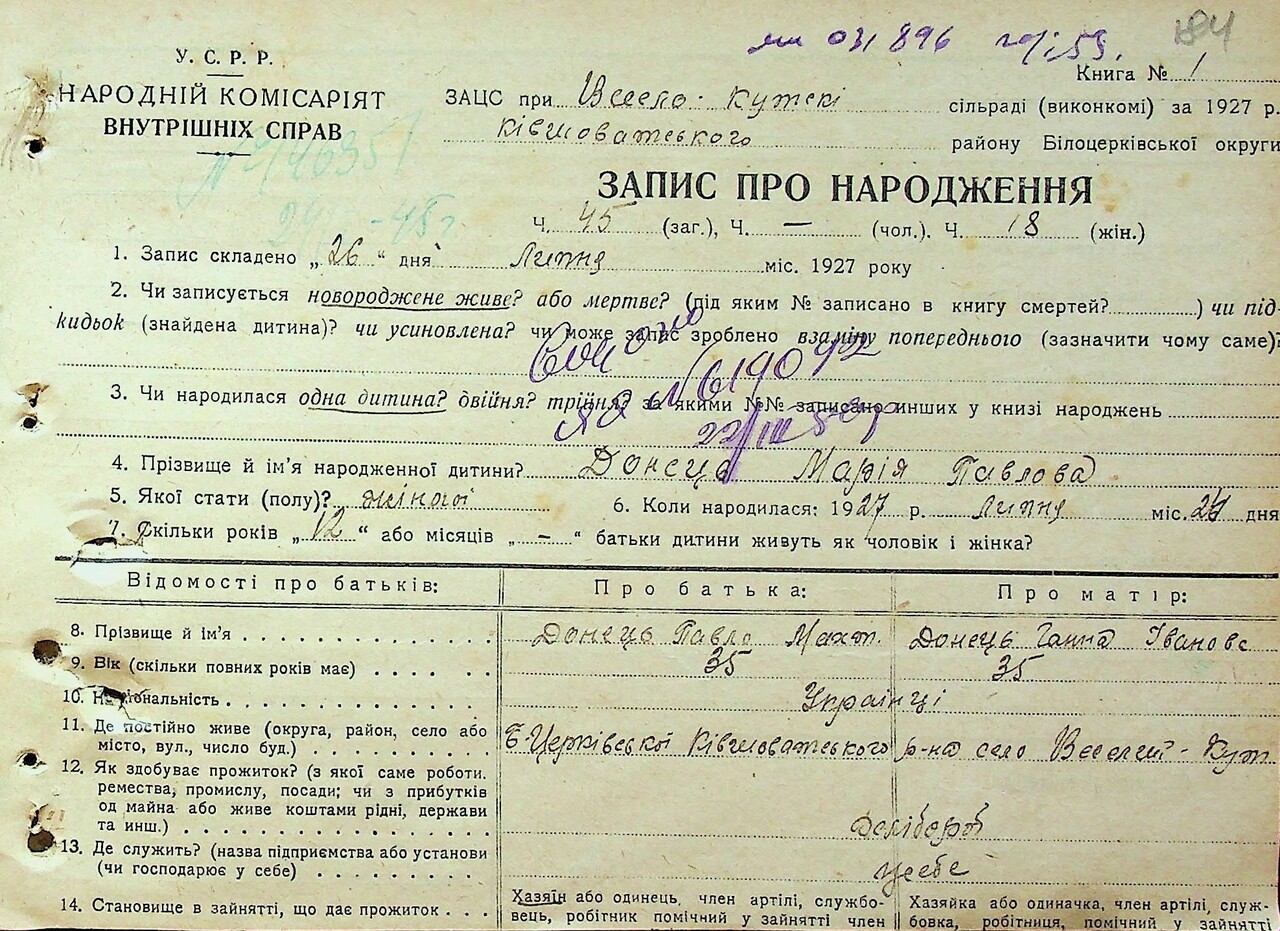 031896
У. С. Р. Р.
Книга № 1
НАРОДНІЙ КОМІСАРІЯТ
ВНУТРІШНІХ СПРАВ
ЗАЦС при Весело-Кутскі сільраді (виконкомі) за 1927 р.
Ківшоватського району Білоцерківської округи
ЗАПИС ПРО НАРОДЖЕННЯ
Ч. 45 (заг.), Ч. — (чол.). Ч. 18 (жін.)
1. Запис складено „26“ дня Липня міс. 1927 року
2. Чи записується новороджене живе? або мертве? (під яким № записано в книгу смертей? ) чи під-
кидьок (знайдена дитина)? чи усиновлена? чи може запис зроблено взаміну попереднього (зазначити чому саме)?
3. Чи народилася одна дитина? двійня? трійня? за якими №№ записано инших у книзі народжень
4. Прізвище й ім’я народженної дитини? Донець Марія Павлова
5. Якої стати (полу)? жіночої 6. Коли народилася: 1927 р. Липня міс. 24 дня
7. Скільки років „12“ або місяців „—“ батьки дитини живуть як чоловік і жінка?
Відомості про батьків: Про батька: Про матір:
8. Прізвище й ім’я Донець Павло Махт. Донець Ганна Іванове
9. Вік (скільки повних років має) 35 35
10. Національність Українці
11. Де постійно живе (округа, район, село або
місто, вул., число буд.) Б-Церківської Ківшоватського р-на село Веселий-Кут
12. Як здобуває прожиток? (з якої саме роботи.
ремества, промислу, посади; чи з прибутків
од майна або живе коштами рідні, держави
та инш.) Хліборої
13. Де служить? (назва підприємства або установи
(чи господарює у себе) у себе
14. Становище в зайнятті, що дає прожиток
Хазяїн або одинець, член артілі, службо-
вець, робітник помічний у зайнятті член
Хазяйка або одиначка, член артілі, служ-
бовка, робітниця, помічний у зайнятті